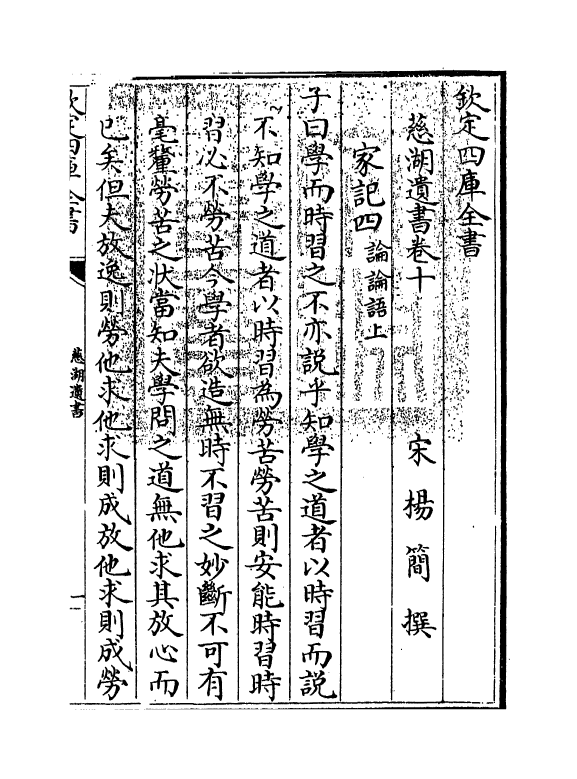 欽定四庫全書
慈湖遺書卷十
宋 楊簡 撰
家記四 論論語上
子曰學而時習之不亦說乎知學之道者以時習而說
不知學之道者以時習為勞苦勞苦則安能時習時
習必不勞苦今學者欲造無時不習之妙斷不可有
毫釐勞苦之狀當知夫學問之道無他求其放心而
已矣但夫放逸則勞他求他求則成放他求則成勞
欽定四庫全書
慈湖遺書
一